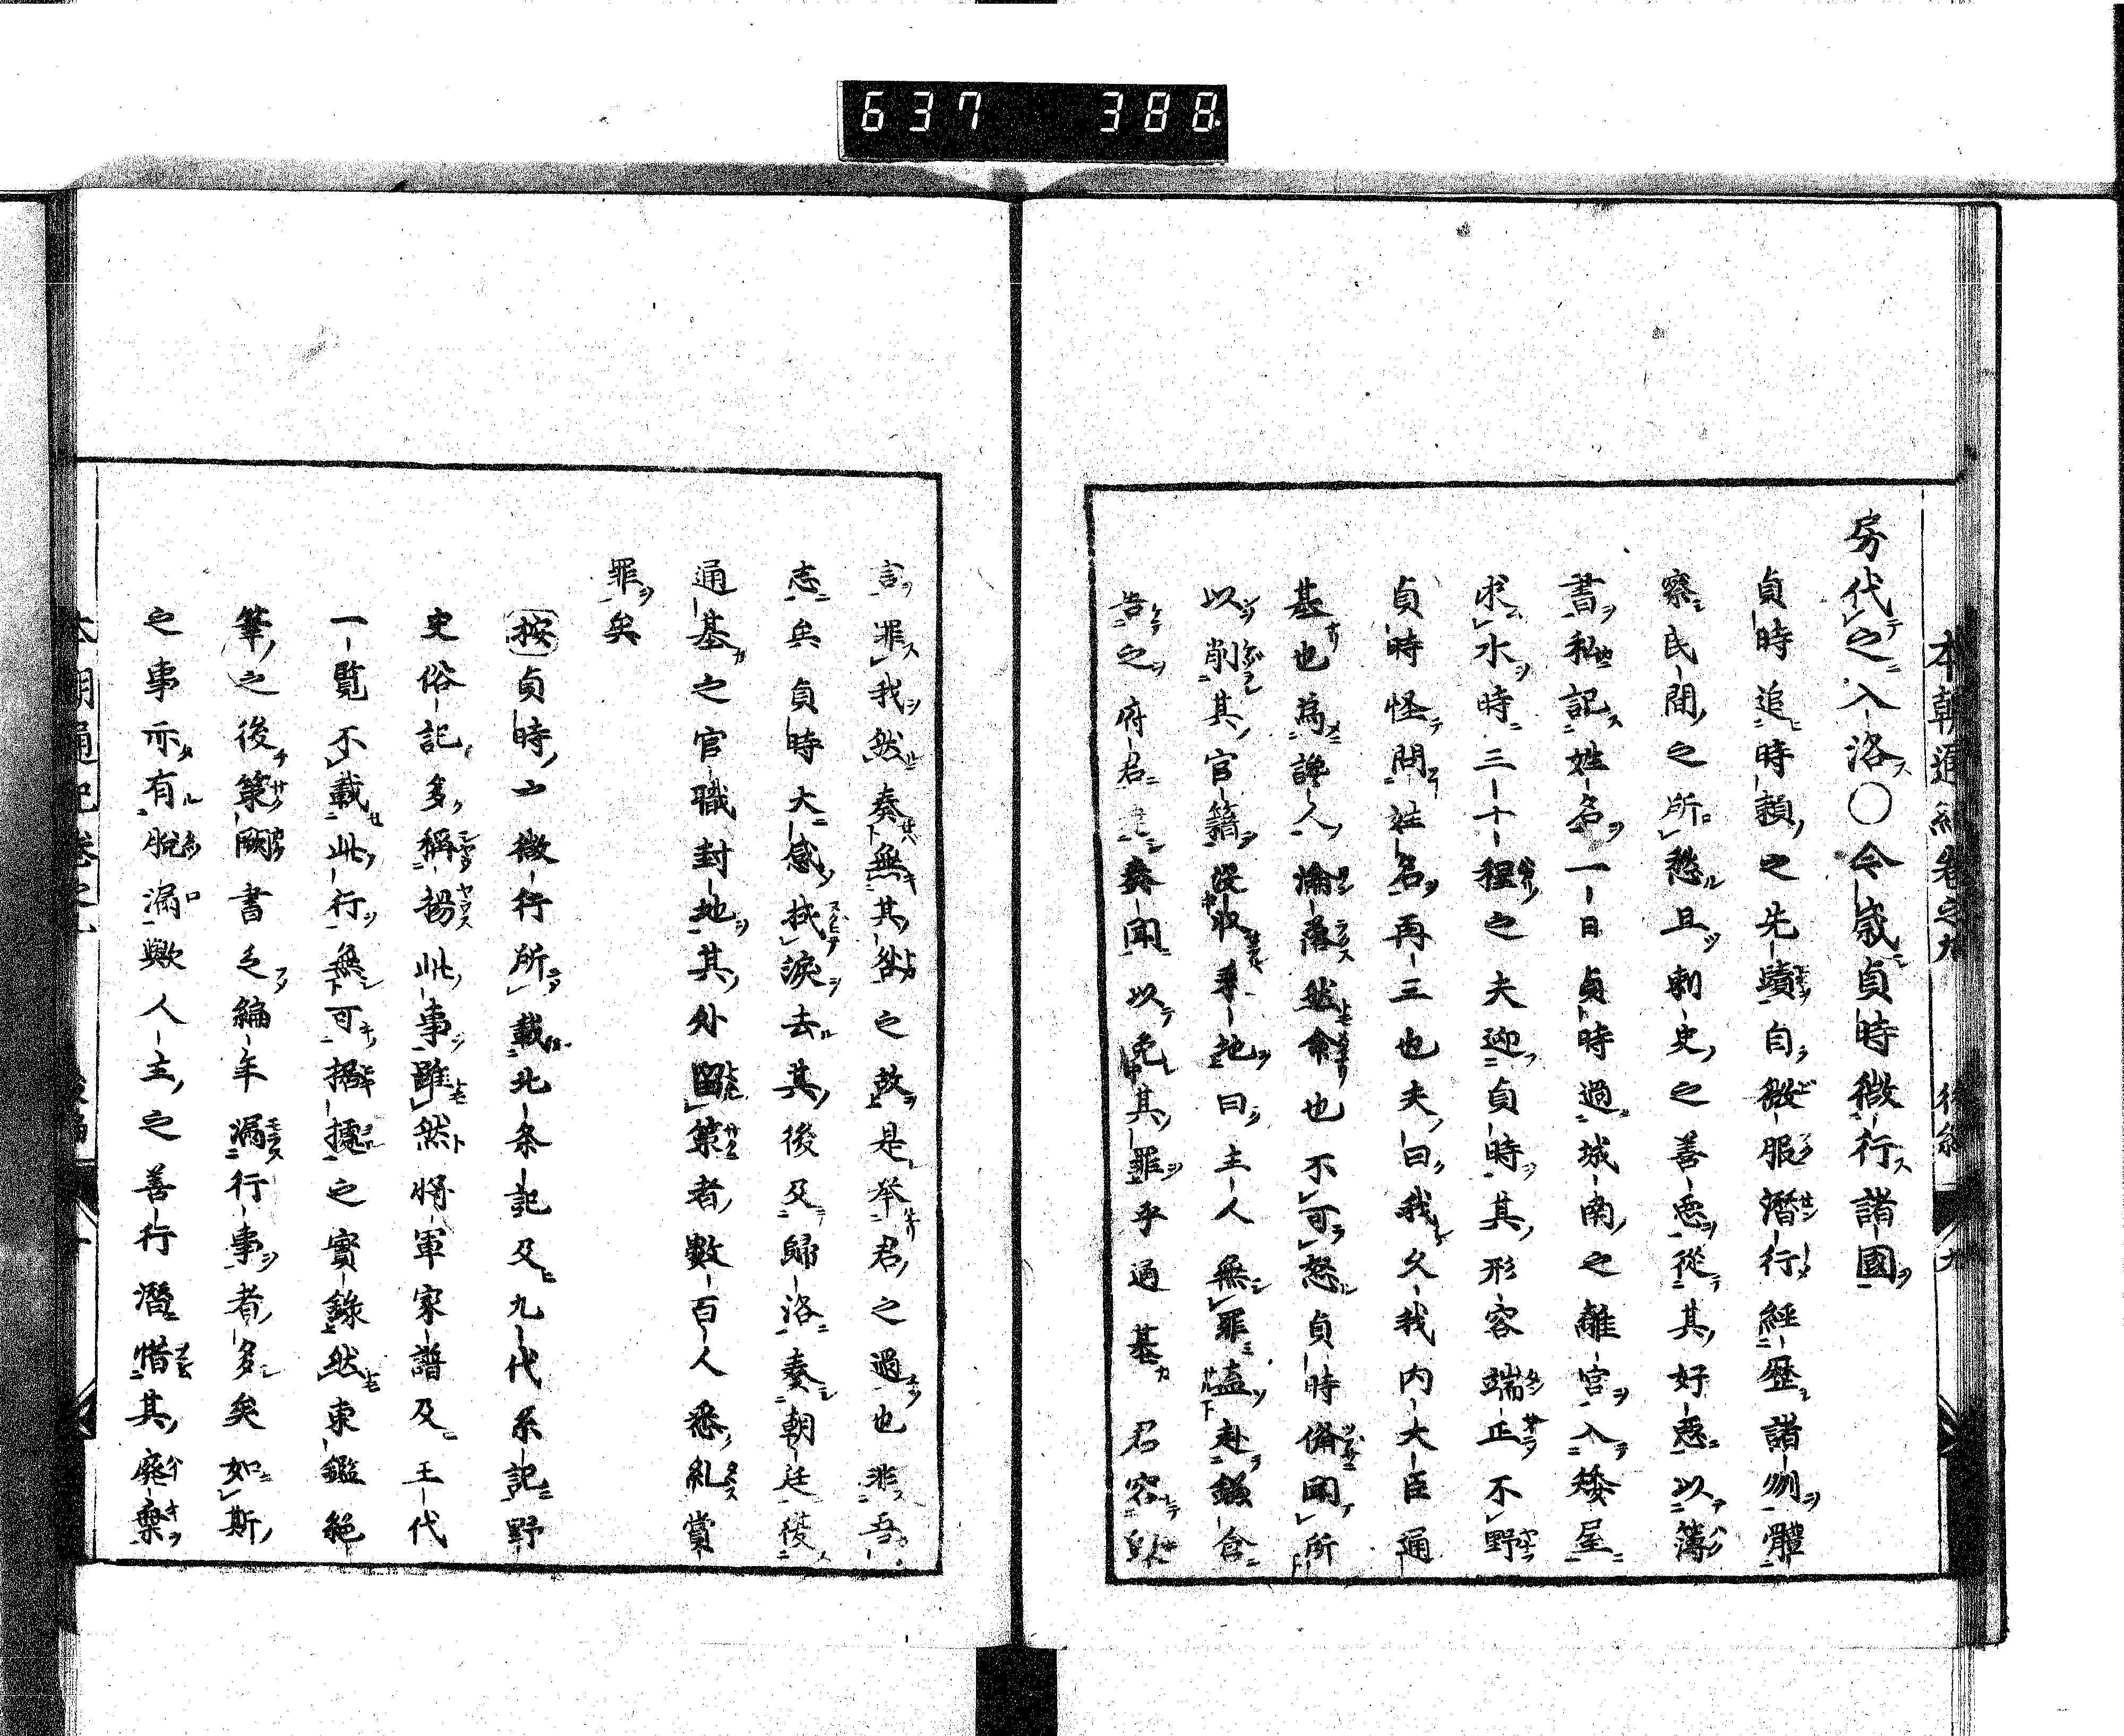 637 388
本朝通紀卷之九 後編 九
房代之入洛○今歳貞時微行諸國
貞時追時頼之先蹟自微服潛行經歷諸州體
察民間之所愁且刺史之善惡從其好惡以簿
書私記姓名一日貞時過城南之離宮入矮屋
求水時三十程之夫迎貞時其形容端正不野
貞時怪問姓名再三也夫曰我久我内大臣通
基也為讒人淪落然命也不可怒貞時俻聞所
以削其官籍沒收采地曰主人無罪盍赴鎌倉
告之府君達奏聞以免其罪乎通基カ君容
言罪我然奏無其咎之故是举君之過也非吾
志矣貞時大感拭淚去其後及歸洛奏朝廷復
通基之官職封地其外留策者數百人悉糺賞
罪矣
按貞時亠微行所載北条記及九代系記野
史俗記多稱揚此事雖然將軍家譜及王代
一覧不載此行無可據據之實錄然東鑑絶
筆之後策厥書乏編年漏行事者多矣如斯
之事亦有脫漏歟人主之善行潛惜其廢棄